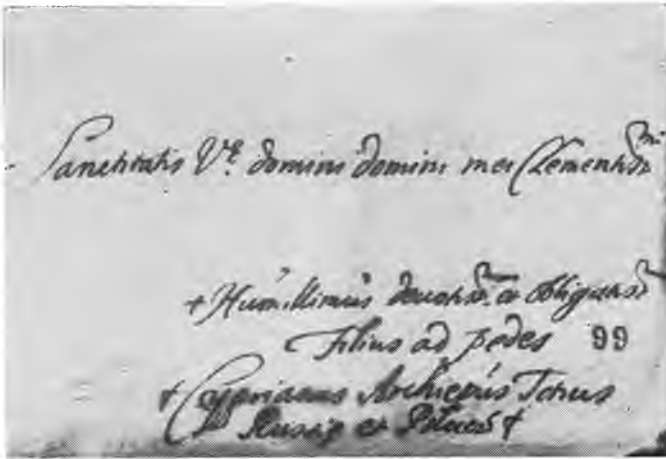 Sanctitatis Vrę domini domini mei Clementissmi
+ Humillimus devotissms et obligatiss
Filius ad pedes 99
+ Cyprianus Archiepus Totius
Russię et Poloces +